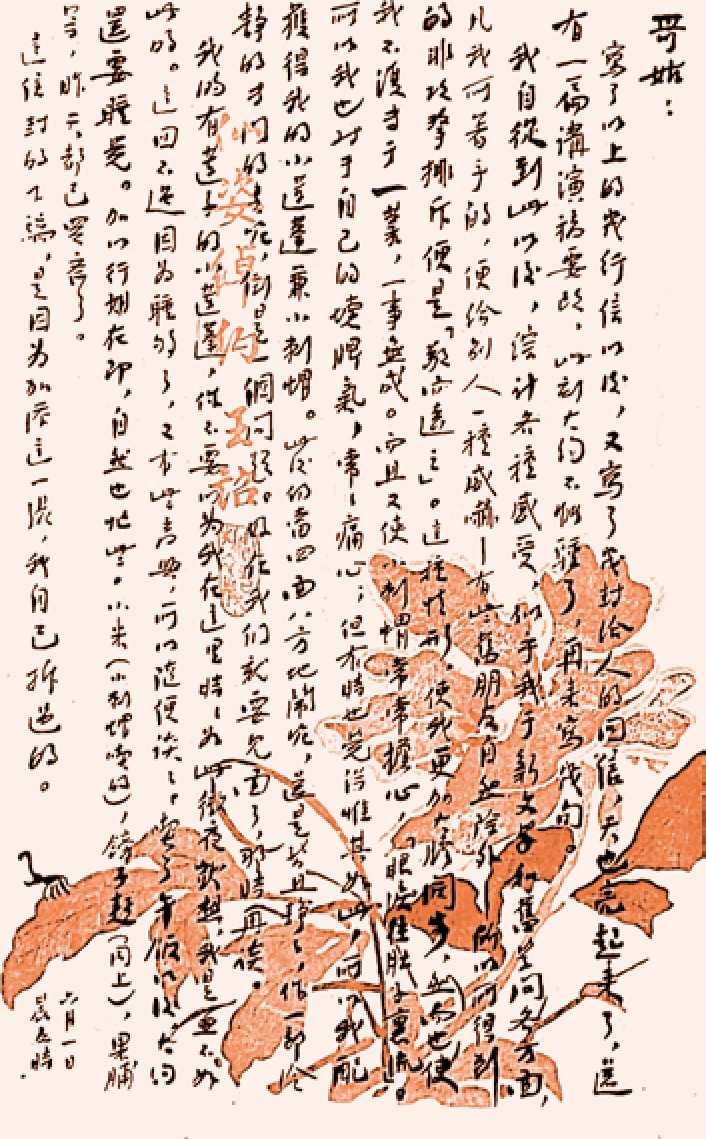 哥姑：
寫了以上的幾行信以後，又寫了幾封給人的回信，天也亮起來了，還
有一篇講演稿要改，此刻大約不能睡了，再來寫幾句。
我自從到此以後，綜計各種感受，似乎我于新文學和舊學問各方面，
凡我所著手的，便給別人一種威嚇—有些舊朋友自然除外—所以所得到
的非攻擊排斥便是「敬而遠之」。這種情形，使我更加大膽闊步，然而也使
我不復專于一業，一事無成。而且又使小刺蝟常常擔心，「眼淚往肚子裏流」。
所以我也對于自己的壞脾氣，常常痛心；但有時也覺得惟其如此，所以我配
獲得我的小蓮蓬兼小刺蝟。此後仍當四面八方地鬧呢，還是暫且靜靜，作一部冷
靜的專門的書呢，倒是一個問題。好在我們就要見面了，那時再談。
我的有蓮子的小蓮蓬，你不要以為我在這里時時如此徹夜獃想，我是並不如
此的。這回不過因為睡夠了，又有些高興，所以隨便談談。吃了午飯以後，大約
還要睡覺。加以行期在即，自然也忙些。小米（小刺蝟吃的），餅子麪（同上），果脯
等，昨天都已買齊了。
這信封的下端，是因為加添這一張，我自己拆過的。
六月一日
晨五時
仙姿綽約